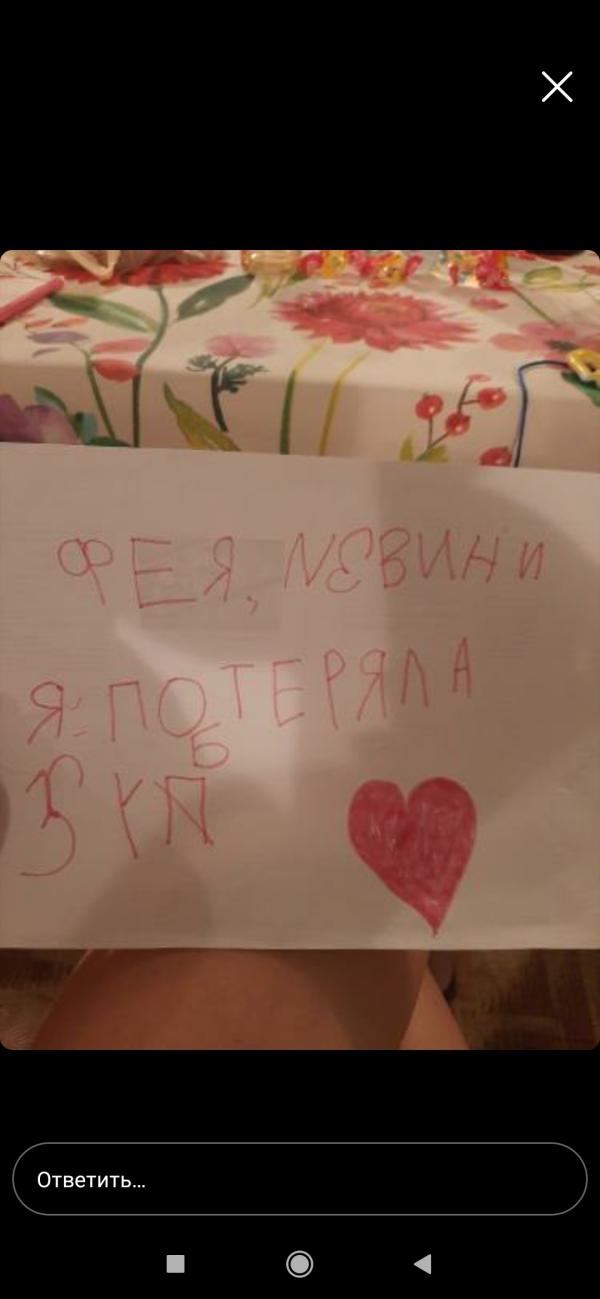 ФЕЯ, ИЗВИНИ
Я ПОТЕРЯЛА
ЗУБ
Ответить...